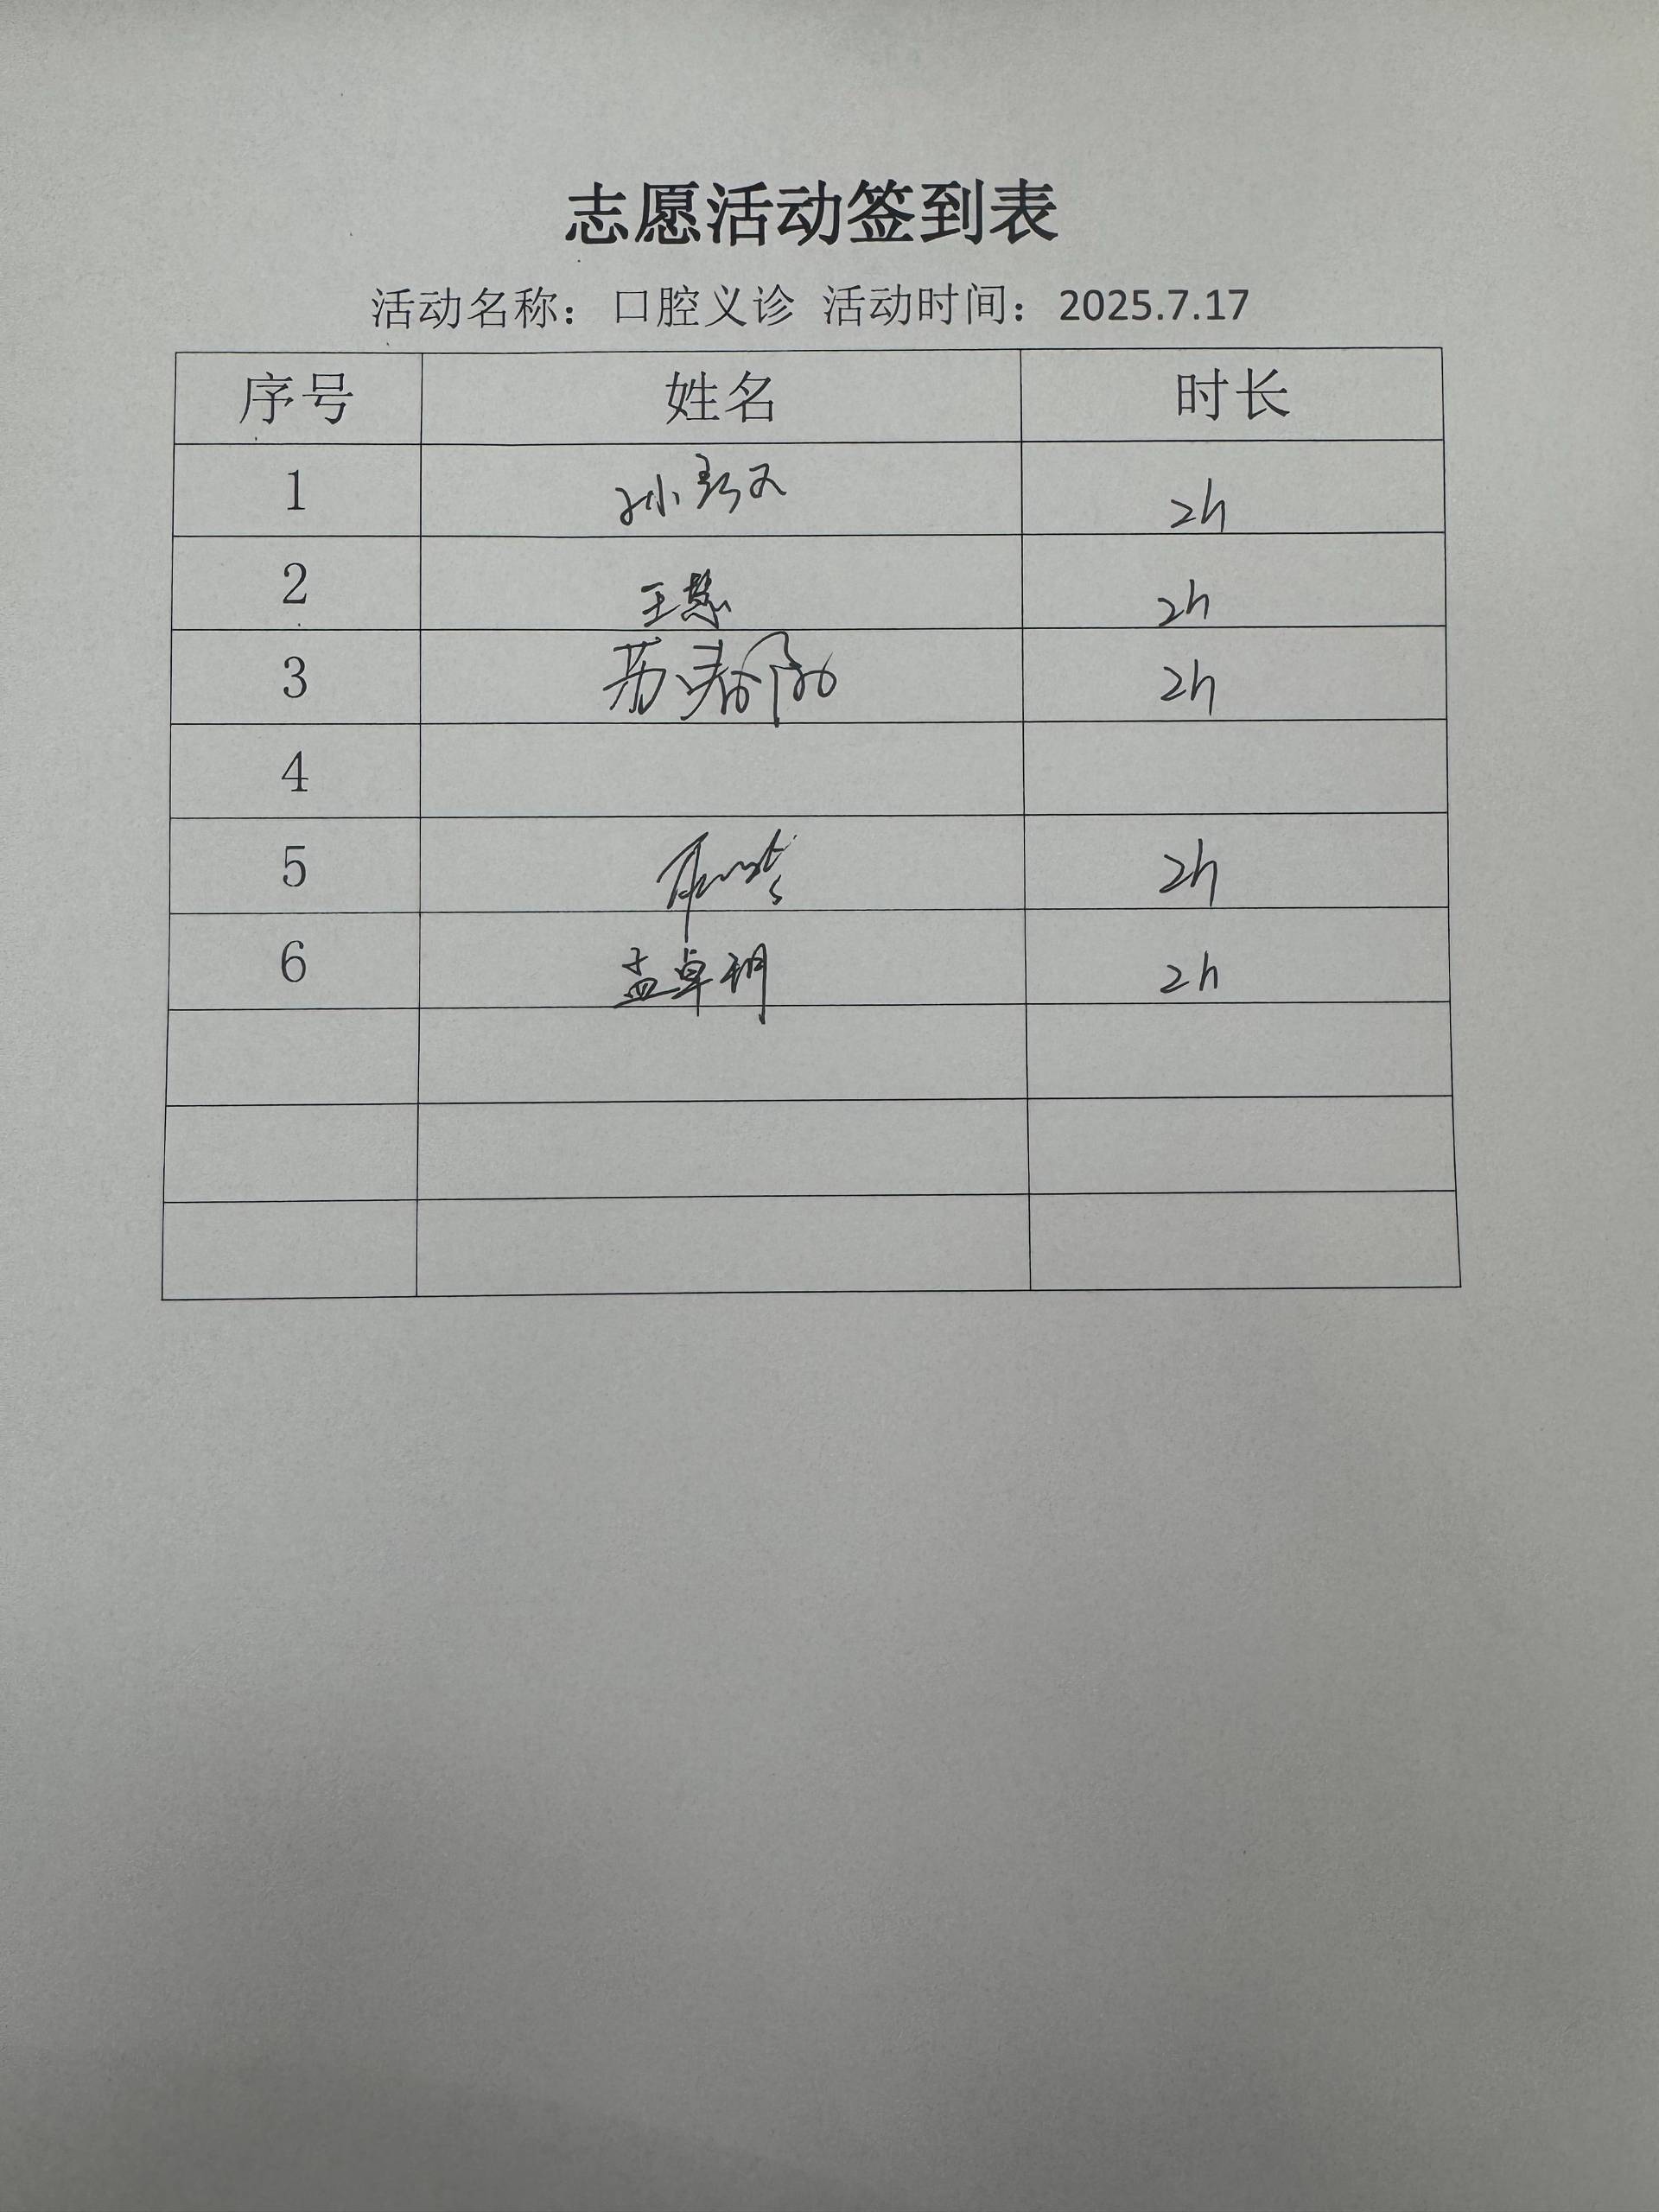 志愿活动签到表
活动名称：口腔义诊 活动时间：2025.7.17
序号 姓名 时长
1 孙 2h
2 王慧 2h
3 苏春 2h
4
5 2h
6 孟卓玥 2h